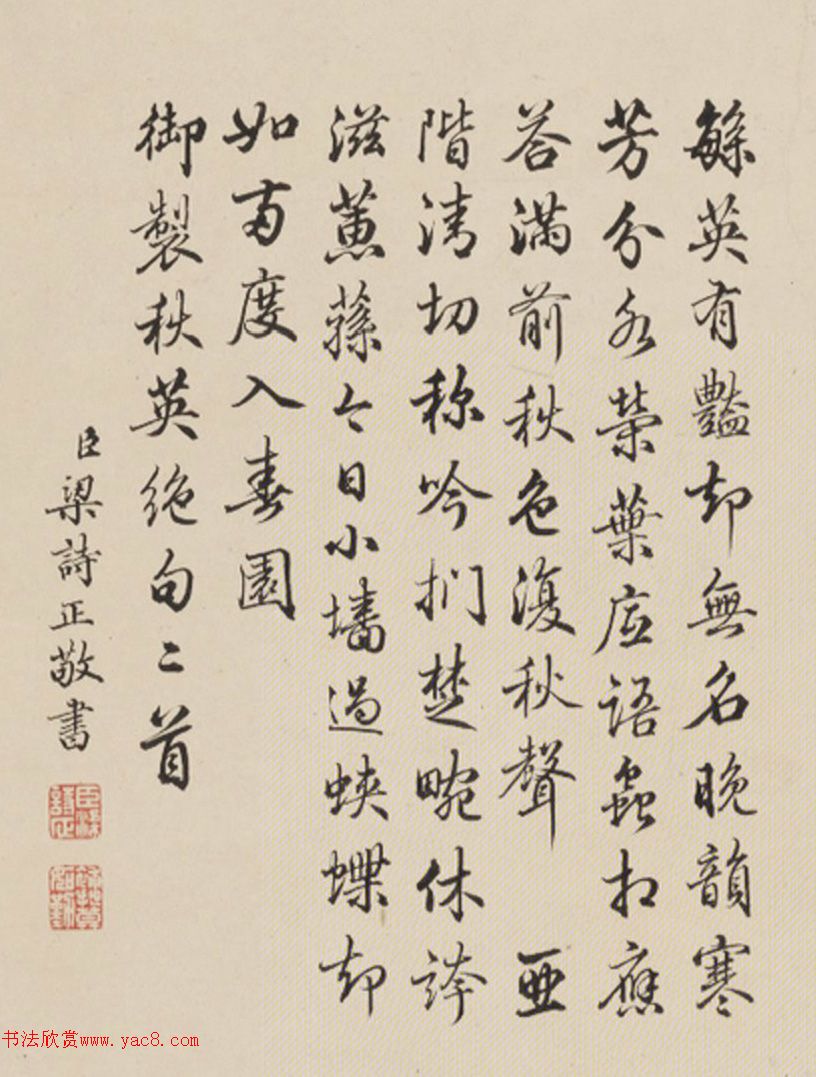 緐英有豔却無名晚韻寒
芳分外榮葉底語蟲相應
荅滿前秋色復秋聲 亞
階清切稱吟捫楚畹休誇
滋蕙蓀今日小墻過蛺蝶却
如两度入春園
御製秋英絶句二首
臣梁詩正敬書
臣梁詩正
书法欣赏www.yac8.com